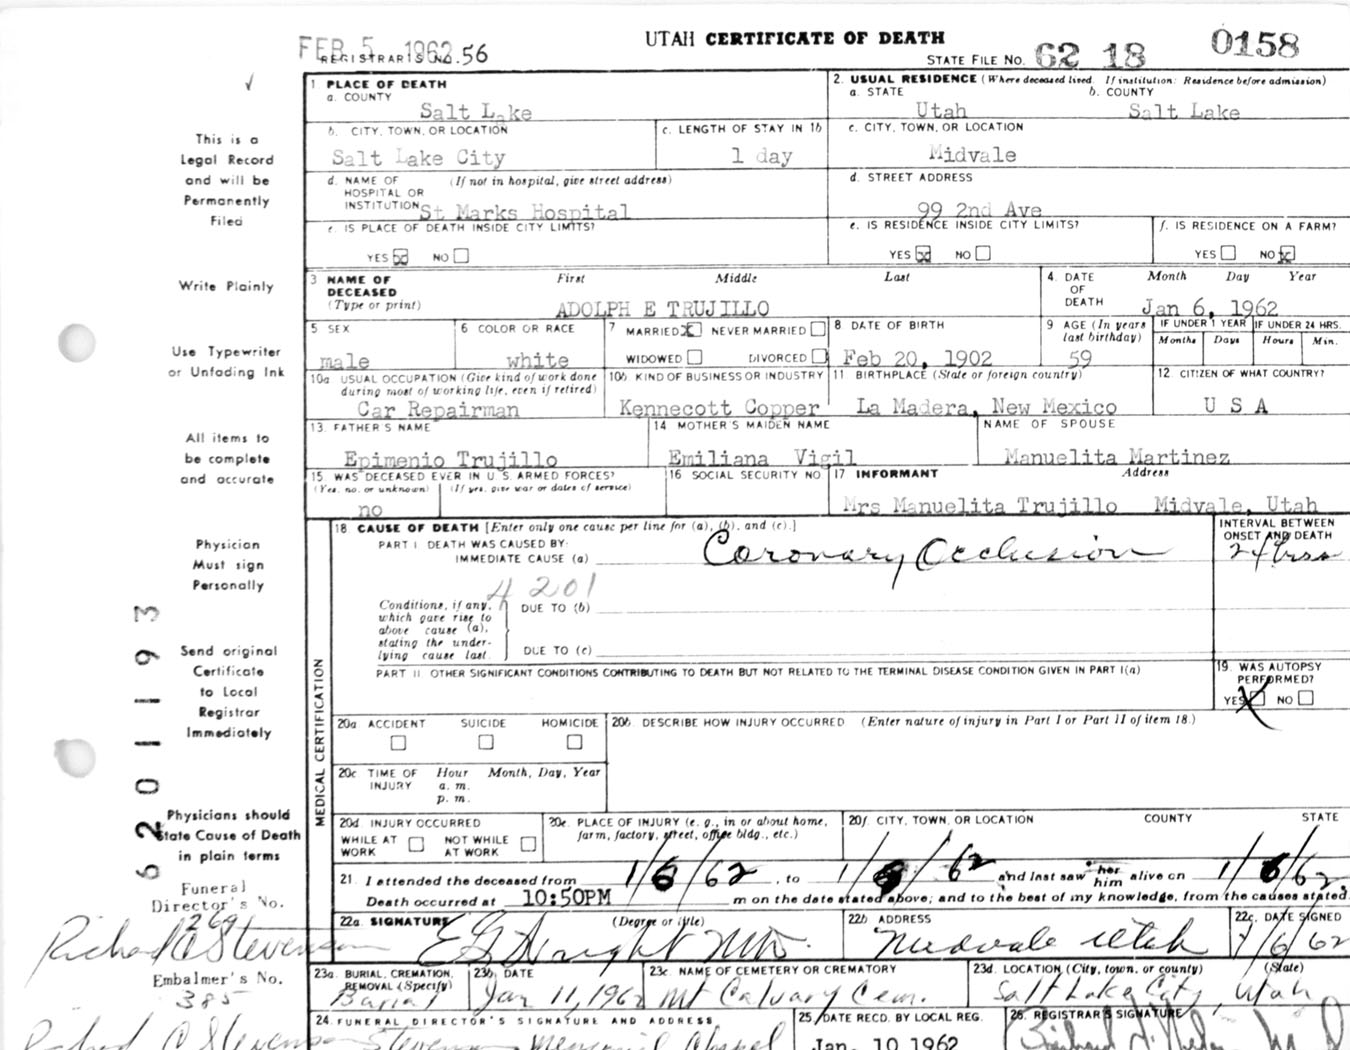 FEB 5 1962
UTAH CERTIFICATE OF DEATH
REGISTRAR'S NO. 56
STATE FILE NO. 62 18 0158
This is a
Legal Record
and will be
Permanently
Filed
Write Plainly
Use Typewriter
or Unfading Ink
All items to
be complete
and accurate
Physician
Must sign
Personally
Send original
Certificate
to Local
Registrar
Immediately
Physicians should
State Cause of Death
in plain terms
Funeral
Director's No.
269
Richard C Stevenson
Embalmer's No.
385
Richard C Stevenson
6201193
1 PLACE OF DEATH
a. COUNTY
Salt Lake
2. USUAL RESIDENCE (Where deceased lived. If institution: Residence before admission)
a. STATE b. COUNTY
Utah Salt Lake
b. CITY, TOWN, OR LOCATION
Salt Lake City
c. LENGTH OF STAY IN 1b
1 day
c. CITY, TOWN, OR LOCATION
Midvale
d. NAME OF (If not in hospital, give street address)
HOSPITAL OR
INSTITUTION St Marks Hospital
d. STREET ADDRESS
99 2nd Ave
e. IS PLACE OF DEATH INSIDE CITY LIMITS?
YES NO
e. IS RESIDENCE INSIDE CITY LIMITS?
YES NO
f. IS RESIDENCE ON A FARM?
YES NO
3 NAME OF DECEASED First Middle Last
(Type or print)
ADOLPH E TRUJILLO
4. DATE OF DEATH Month Day Year
Jan 6, 1962
5 SEX
male
6 COLOR OR RACE
white
7 MARRIED NEVER MARRIED
WIDOWED DIVORCED
8 DATE OF BIRTH
Feb 20, 1902
9 AGE (In years last birthday)
59
IF UNDER 1 YEAR IF UNDER 24 HRS.
Months Days Hours Min.
10a USUAL OCCUPATION (Give kind of work done
during most of working life, even if retired)
Car Repairman
10b KIND OF BUSINESS OR INDUSTRY
Kennecott Copper
11 BIRTHPLACE (State or foreign country)
La Madera, New Mexico
12 CITIZEN OF WHAT COUNTRY?
U S A
13. FATHER'S NAME
Epimenio Trujillo
14 MOTHER'S MAIDEN NAME
Emiliana Vigil
NAME OF SPOUSE
Manuelita Martinez
15 WAS DECEASED EVER IN U.S. ARMED FORCES?
(Yes, no, or unknown) (If yes, give war or dates of service)
no
16 SOCIAL SECURITY NO
17 INFORMANT Address
Mrs Manuelita Trujillo Midvale, Utah
MEDICAL CERTIFICATION
18 CAUSE OF DEATH [Enter only one cause per line for (a), (b), and (c).]
PART I DEATH WAS CAUSED BY:
IMMEDIATE CAUSE (a) Coronary Occlusion
INTERVAL BETWEEN
ONSET AND DEATH
24 hrs
4201
Conditions, if any,
which gave rise to
above cause (a),
stating the under-
lying cause last.
DUE TO (b)
DUE TO (c)
PART II OTHER SIGNIFICANT CONDITIONS CONTRIBUTING TO DEATH BUT NOT RELATED TO THE TERMINAL DISEASE CONDITION GIVEN IN PART I(a)
19. WAS AUTOPSY
PERFORMED?
YES NO
20a ACCIDENT SUICIDE HOMICIDE
20b. DESCRIBE HOW INJURY OCCURRED (Enter nature of injury in Part I or Part II of item 18.)
20c TIME OF INJURY Hour Month, Day, Year
a. m.
p. m.
20d INJURY OCCURRED
WHILE AT WORK NOT WHILE AT WORK
20e. PLACE OF INJURY (e. g., in or about home,
farm, factory, street, office bldg., etc.)
20f. CITY, TOWN, OR LOCATION COUNTY STATE
21. I attended the deceased from 1/6/62, to 1/6/62 and last saw her him alive on 1/6/62.
Death occurred at 10:50PM m on the date stated above; and to the best of my knowledge, from the causes stated.
22a. SIGNATURE (Degree or title)
E G Wright MD.
22b ADDRESS
Midvale Utah
22c. DATE SIGNED
1/6/62
23a. BURIAL, CREMATION,
REMOVAL (Specify)
Burial
23b DATE
Jan 11, 1962
23c NAME OF CEMETERY OR CREMATORY
Mt Calvary Cem.
23d. LOCATION (City, town, or county) (State)
Salt Lake City, Utah
24. FUNERAL DIRECTOR'S SIGNATURE AND ADDRESS
Stevenson Memorial Chapel
25. DATE RECD. BY LOCAL REG.
Jan. 10 1962
26. REGISTRAR'S SIGNATURE